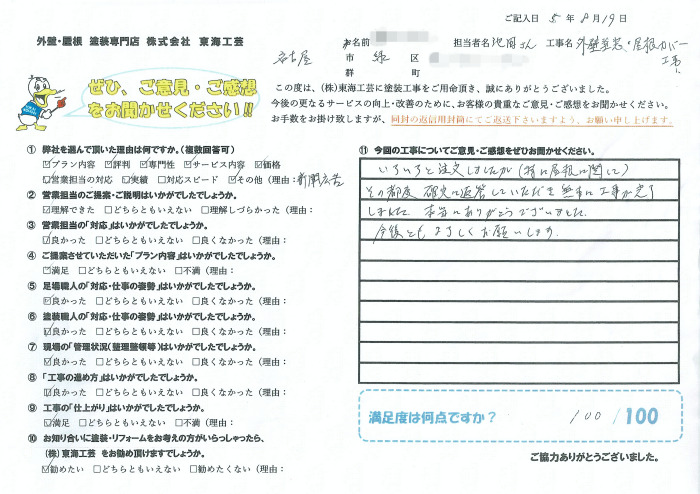 ご記入日 5 年 8 月 19 日
外壁・屋根 塗装専門店 株式会社 東海工芸
お名前 担当者名 池田さん 工事名 外壁塗装・屋根カバー工事
名古屋 市 緑 区
郡 町
ぜひ、ご意見・ご感想
をお聞かせください!!
この度は、(株)東海工芸に塗装工事をご用命頂き、誠にありがとうございました。
今後の更なるサービスの向上・改善のために、お客様の貴重なご意見・ご感想をお聞かせください。
お手数をお掛け致しますが、同封の返信用封筒にてご返送下さいますよう、お願い申し上げます。
① 弊社を選んで頂いた理由は何ですか。(複数回答可)
☑プラン内容 ☑評判 ☑専門性 ☑サービス内容 ☑価格
☑営業担当の対応 ☑実績 □対応スピード ☑その他(理由:新聞広告
② 営業担当のご提案・ご説明はいかがでしたでしょうか。
☑理解できた □どちらともいえない □理解しづらかった(理由:
③ 営業担当の「対応」はいかがでしたでしょうか。
☑良かった □どちらともいえない □良くなかった(理由:
④ ご提案させていただいた「プラン内容」はいかがでしたでしょうか。
☑満足 □どちらともいえない □不満(理由:
⑤ 足場職人の「対応・仕事の姿勢」はいかがでしたでしょうか。
☑良かった □どちらともいえない □良くなかった(理由:
⑥ 塗装職人の「対応・仕事の姿勢」はいかがでしたでしょうか。
☑良かった □どちらともいえない □良くなかった(理由:
⑦ 現場の「管理状況(整理整頓等)はいかがでしたでしょうか。
☑良かった □どちらともいえない □良くなかった(理由:
⑧ 「工事の進め方」はいかがでしたでしょうか。
☑良かった □どちらともいえない □良くなかった(理由:
⑨ 工事の「仕上がり」はいかがでしたでしょうか。
☑満足 □どちらともいえない □不満(理由:
⑩ お知り合いに塗装・リフォームをお考えの方がいらっしゃったら、
(株)東海工芸 をお勧め頂けますでしょうか。
☑勧めたい □どちらともいえない □勧めたくない(理由:
⑪ 今回の工事についてご意見・ご感想をぜひお聞かせください。
いろいろと注文しましたが(特に屋根に関して)
その都度 確実に返答していただき 無事に工事が完了
しました。本当にありがとうございました。
今後ともよろしくお願いします。
満足度は何点ですか? 100 /100
ご協力ありがとうございました。